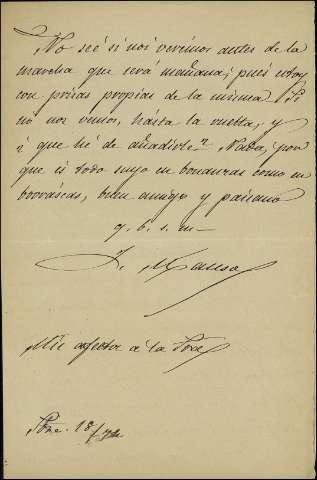 No sé si nos veremos antes de la
marcha que será mañana; pues estoy
con prisas propias de la misma. Si
nó nos vemos, hásta la vuelta, y
¿ que hé de añadirle? Nada, por
que és todo suyo en bonanzas como en
borráscas, buen amigo y paisano
q. b. s. m—
Mil afectos á la Sra
18/